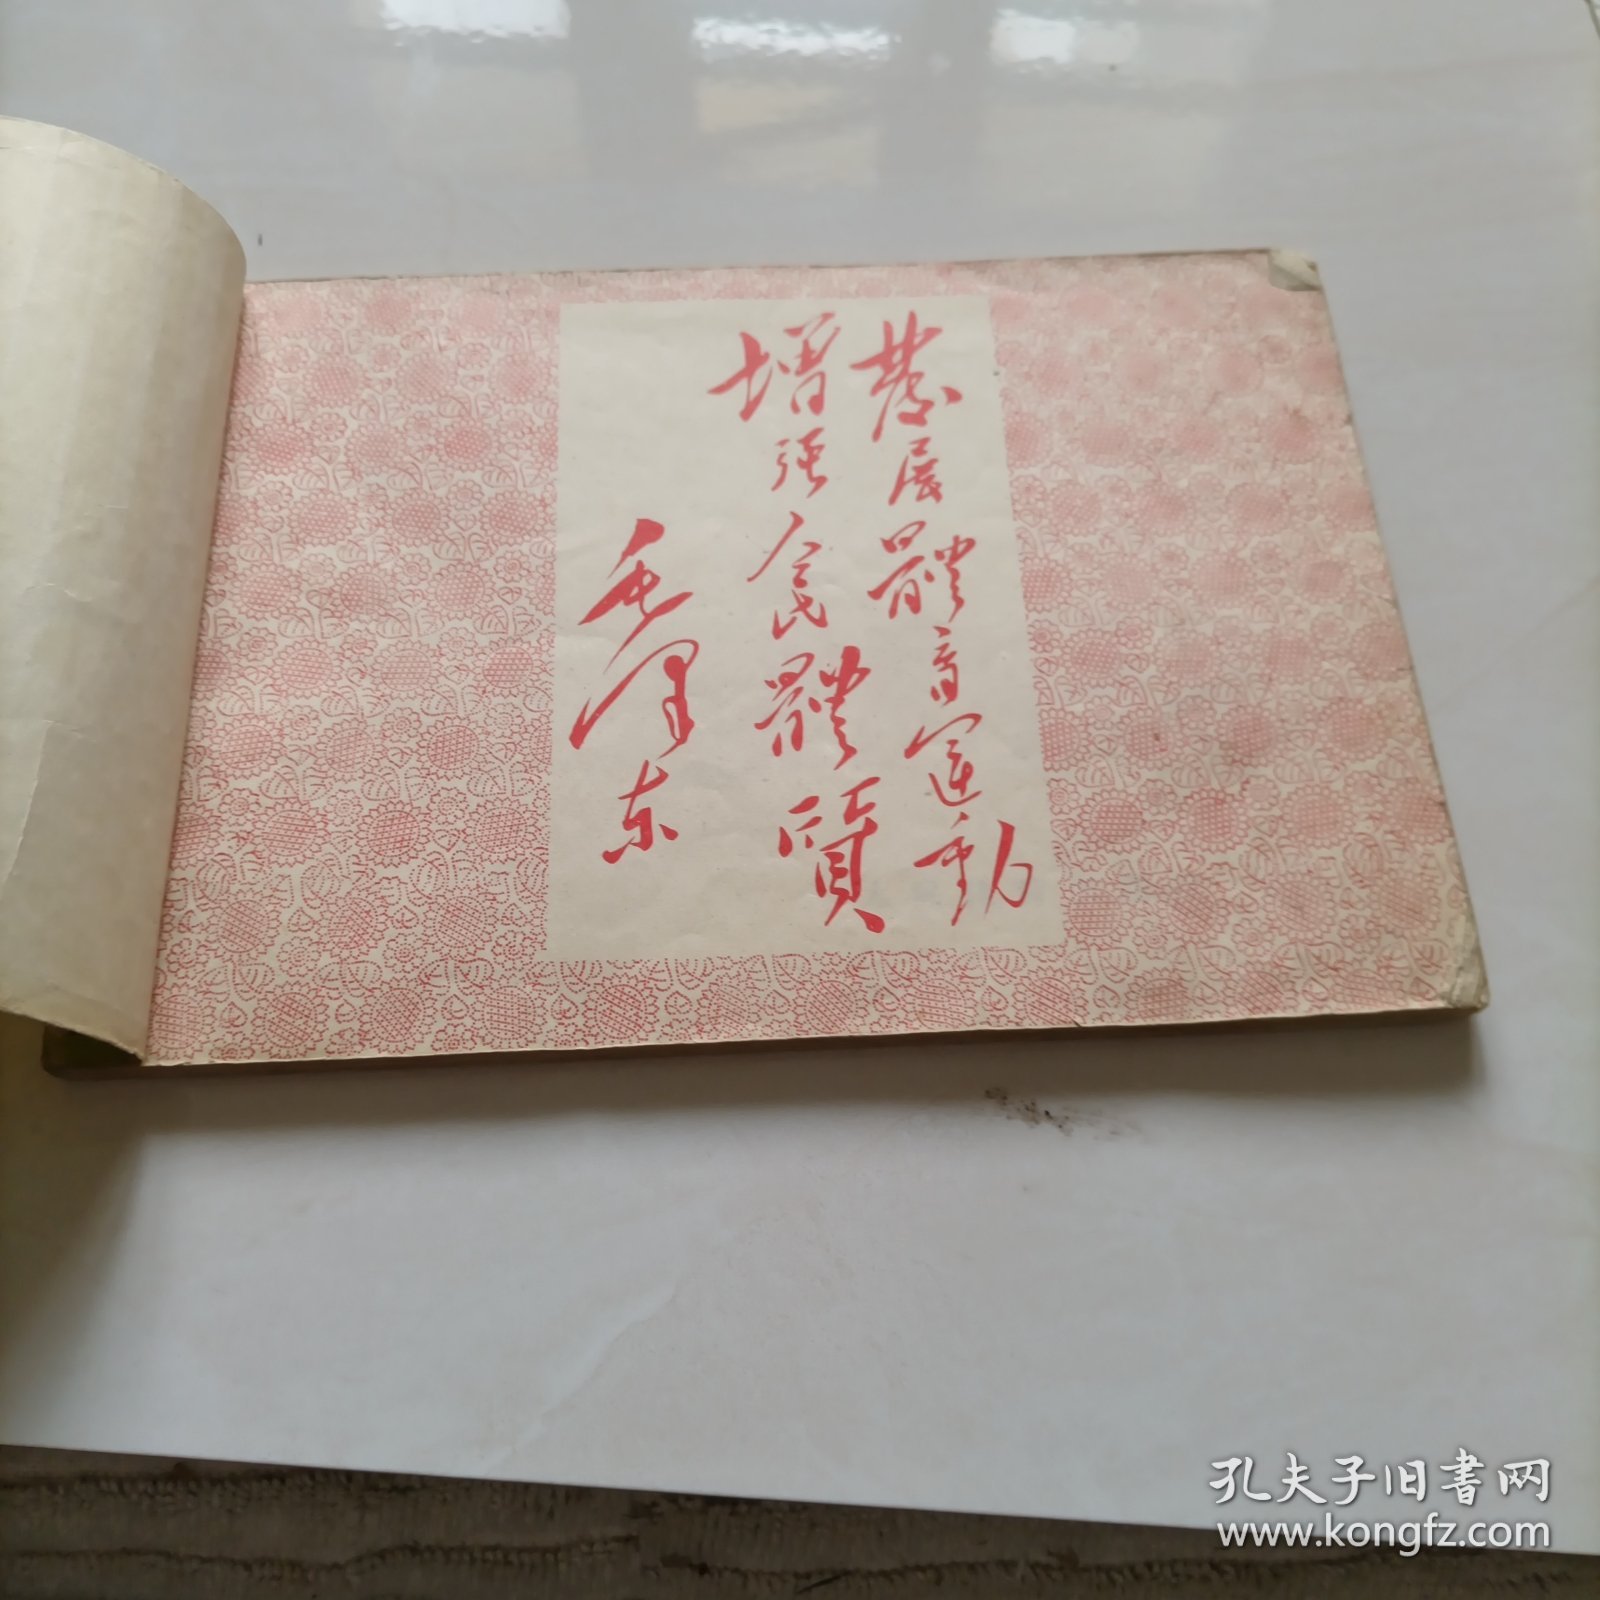 發展體育運動
增强人民體質
毛澤东
孔夫子旧书网
www.kongfz.com